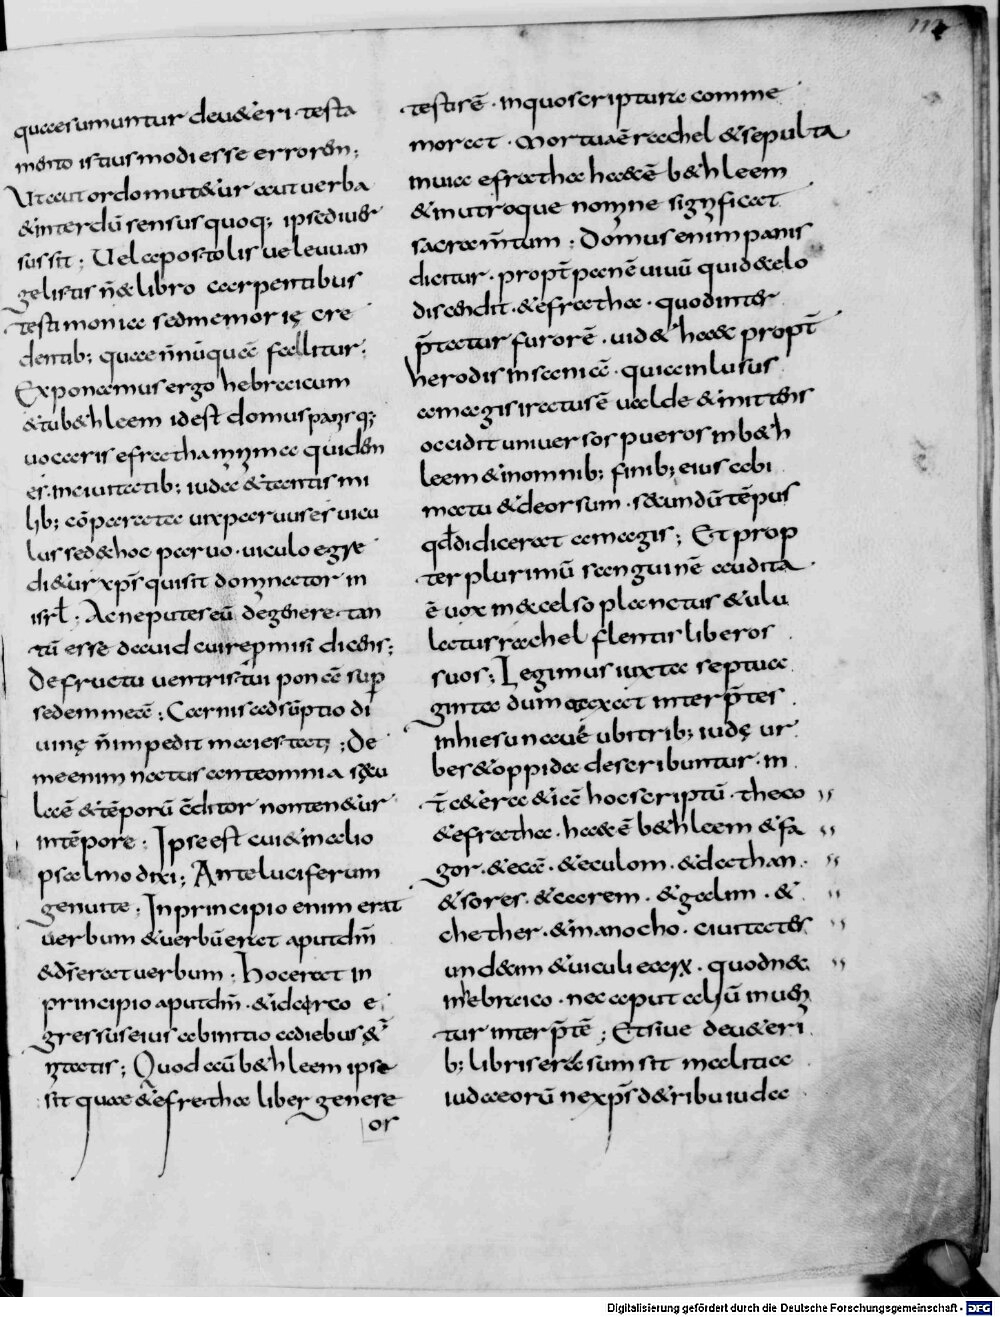 112
quae sumuntur de u&eri testa
mento istius modi esse errorem;
Ut aut ordo mut&ur aut uerba
& interdū sensus quoq; ipse diuer
sus sit; Uel apostolis uel euuan
gelistis n̄ & libro carpentibus
testimonia sed memorię cre
dentib; quae nnūquā fallitur;
Exponamus ergo hebraicum
& tu b&hleem id est domus panis q;
uocaris efratha minima quidem
es. in ciuitatib; iuda & tantis mi
lib; cōparata uix paruus es uicu
lus sed & hoc paruo uiculo egre
di&ur xps qui sit dominator in
isrl; Ac ne putes eū de genere tan
tū esse dauid cui repmisi dicens;
De fructu uentris tui ponā sup
sedem meā; Carnis adsūptio di
uinę n̄ impedit maiestati; De
me enim natus ante omnia secu
la & tēporū cditor non ten&ur
in tēpore; Ipse est cui & in alio
psalmo dixi; Ante luciferum
genui te; In principio enim erat
uerbum & uerbū erat aput dm
& ds erat uerbum; Hoc erat in
principio aput dm. & idcirco e
gressus eius ab initio a diebus &
nitatis; Quod aū b&hleem ipse
sit quae & efratha liber genere
os
testis ē. in quo scriptura comme
morat. Mortua ē rachel & sepulta
in uia efratha haec ē b&hleem
& in utroque nomine significat
sacram̄tum; Domus enim panis
dicitur. propt panē uiuū qui de caelo
discendit. & efratha. quod inter
ptatur furorē. uid& haec propt
herodis insaniā. qui a inlusus
a magis iratus ē ualde & mittens
occidit uniuersos pueros in b&h
leem & in omnib; finib; eius a bi
matu & deorsum. secundū tēpus
qd didicerat a magis; Et prop
ter plurimū sanguinē audita
ē uox in excelso planctus & ulu
latus rachel flentis liberos
suos; Legimus iuxta septua
ginta dumtaxat interptes
in hiesu naue ubi trib; iudę ur
bes & oppida describuntur. in
t cetera & iā hoc scriptū. theco
& efratha. haec ē b&hleem & fa
gor. & aeā. & aculom. & dathan.
& sores. & carem. & galim. &
chether. & manocho. ciuitates
undecim & uiculi earx. quod nec
in hebraico. nec aput aliū inuen
tur interptē; Et siue de u&eri
b; libris erasum sit malitia
iudaeorū ne xps de tribu iuda